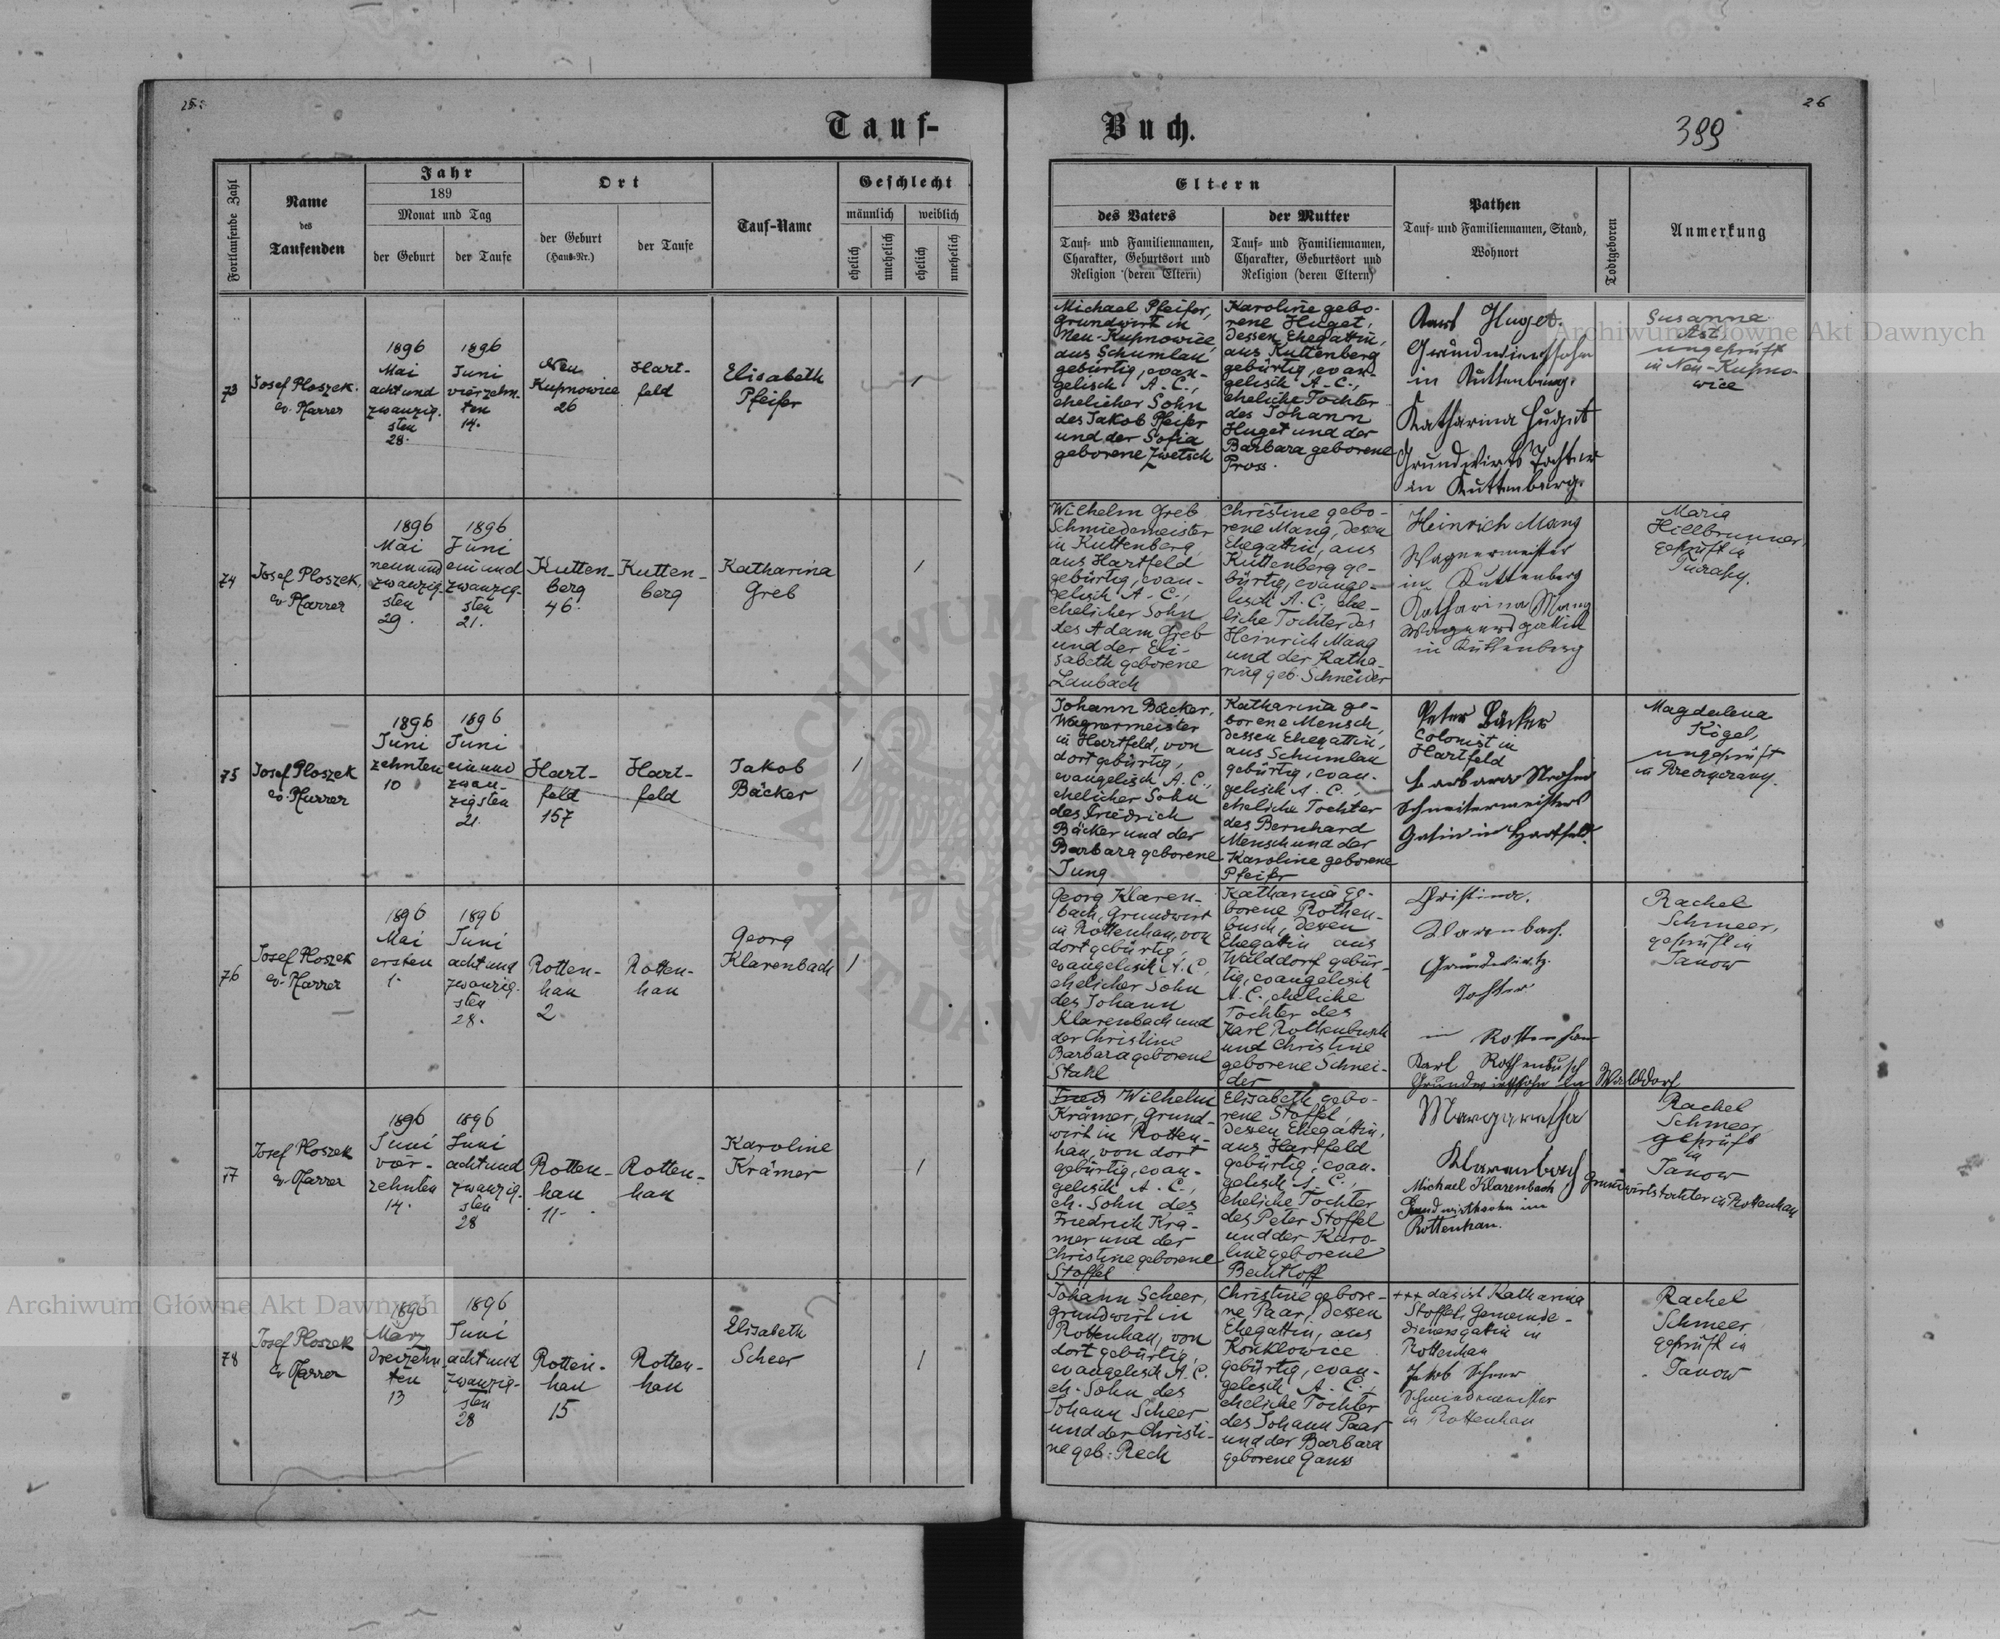 25
26
Tauf-
Buch.
399
Fortlaufende Zahl
Name
des
Taufenden
Jahr
189
Monat und Tag
der Geburt
der Taufe
Ort
der Geburt
(Haus-Nr.)
der Taufe
Tauf-Name
Geschlecht
männlich
weiblich
ehelich
unehelich
ehelich
unehelich
Eltern
des Vaters
Tauf- und Familiennamen,
Charakter, Geburtsort und
Religion (deren Eltern)
der Mutter
Tauf- und Familiennamen,
Charakter, Geburtsort und
Religion (deren Eltern)
Pathen
Tauf- und Familiennamen, Stand,
Wohnort
Todtgeboren
Anmerkung
73
Josef Ploszek
ev. Pfarrer
1896
Mai
acht und
zwanzig-
sten
28.
1896
Juni
vierzehn-
ten
14.
Neu
Kupnowice
26
Hart-
feld
Elisabeth
Pfeifer
1
Michael Pfeifer,
Grundwirt in
Neu-Kupnowice,
aus Schumlau
gebürtig, evan-
gelisch A. C.,
ehelicher Sohn
des Jakob Pfeifer
und der Sofia
geborene Zwetsch
Karoline gebo-
rene Huget,
dessen Ehegattin,
aus Kuttenberg
gebürtig, evan-
gelisch A. C.,
eheliche Tochter
des Johann
Huget und der
Barbara geborene
Pross.
Huget.
Grundwirtssohn
in Kuttenberg.
Katharina Huget
Grundwirts Tochter
in Kuttenberg.
Susanna
Ast
ungeprüft
in Neu-Kupno-
wice
74
Josef Ploszek,
ev. Pfarrer
1896
Mai
neun und
zwanzig-
sten
29.
1896
Juni
ein und
zwanzig-
sten
21.
Kutten-
berg
46.
Kutten-
berg
Katharina
Greb
1
Wilhelm Greb
Schmiedemeister
in Kuttenberg,
aus Hartfeld
gebürtig, evan-
gelisch A. C.,
ehelicher Sohn
des Adam Greb
und der Eli-
sabeth geborene
Laubach
Christine gebo-
rene Mang, dessen
Ehegattin, aus
Kuttenberg ge-
bürtig, evange-
lisch A. C., ehe-
liche Tochter des
Heinrich Mang
und der Katha-
rina geb. Schneider
Heinrich Mang
Wagnermeister
in Kuttenberg
Katharina Mang
Wagners gattin
in Kuttenberg
Maria
Hillbrunner,
geprüft in
75
Josef Ploszek
ev. Pfarrer
1896
Juni
zehnten
10
1896
Juni
ein und
zwan-
zigsten
21.
Hart-
feld
157
Hart-
feld
Jakob
Bäcker
1
Johann Bäcker,
Wagnermeister
in Hartfeld, von
dort gebürtig,
evangelisch A. C.,
ehelicher Sohn
des Friedrich
Bäcker und der
Barbara geborene
Jung
Katharina ge-
borene Mensch,
dessen Ehegattin,
aus Schumlau
gebürtig, evan-
gelisch A. C.,
eheliche Tochter
des Bernhard
Mensch und der
Karoline geborene
Pfeifer
Peter Bäcker
Colonist in
Hartfeld
Barbara
Schneitermeisters
Gatin in Hartfeld.
Magdalena
Kögel,
ungeprüft
in
76
Josef Ploszek
ev. Pfarrer
1896
Mai
ersten
1.
1896
Juni
acht und
zwanzig-
sten
28.
Rotten-
han
2
Rotten-
han
Georg
Klarenbach
1
Georg Klaren-
bach, Grundwirt
in Rottenhan, von
dort gebürtig,
evangelisch A. C.,
ehelicher Sohn
des Johann
Klarenbach und
der Christine
Barbara geborene
Stahl
Katharina ge-
borene Rothen-
busch, dessen
Ehegattin aus
Walddorf gebür-
tig, evangelisch
A. C., eheliche
Tochter des
Karl Rothenbusch
und Christine
geborene Schnei-
der
Christina.
Klarenbach.
Grundwirtz.
Tochter
in Rottenhan
Karl Rothenbusch
Grundwirthsohn in Walddorf
Rachel
Schmeer,
geprüft in
Janow
77
Josef Ploszek
ev. Pfarrer
1896
Juni
vier-
zehnten
14.
1896
Juni
acht und
zwanzig-
sten
28
Rotten-
han
11.
Rotten-
han
Karoline
Krämer
1
Fried Wilhelm
Krämer, Grund-
wirt in Rotten-
han, von dort
gebürtig, evan-
gelisch A. C.,
eh. Sohn des
Friedrich Krä-
mer und der
Christine geborene
Stoffel
Elisabeth gebo-
rene Stoffel,
dessen Ehegattin,
aus Hartfeld
gebürtig, evan-
gelisch A. C.,
eheliche Tochter
des Peter Stoffel
und der Karo-
line geborene
Bechtloff
Margaretha
Klarenbach Grundwirtstochter in Rottenhan
Michael Klarenbach
Grundwirthsohn in
Rottenhan.
Rachel
Schmeer,
geprüft
in
Janow
78
Josef Ploszek
ev. Pfarrer
1896
März
dreizehn-
ten
13
1896
Juni
acht und
zwanzig-
sten
28
Rotten-
han
15
Rotten-
han
Elisabeth
Scheer
1
Johann Scheer,
Grundwirt in
Rottenhan, von
dort gebürtig,
evangelisch A. C.
eh. Sohn des
Johann Scheer
und der Christi-
ne geb. Rech
Christine gebore-
ne Paar, dessen
Ehegattin, aus
Konklowice
gebürtig, evan-
gelisch A. C.,
eheliche Tochter
des Johann Paar
und der Barbara
geborene Gauss
+++ das ist Katharina
Stoffel, Gemeinde-
dienersgattin in
Rottenhan
Jakob Scheer
Schmiedmeister
in Rottenhan
Rachel
Schmeer
geprüft in
Janow
Archiwum Główne Akt Dawnych
Archiwum Główne Akt Dawnych